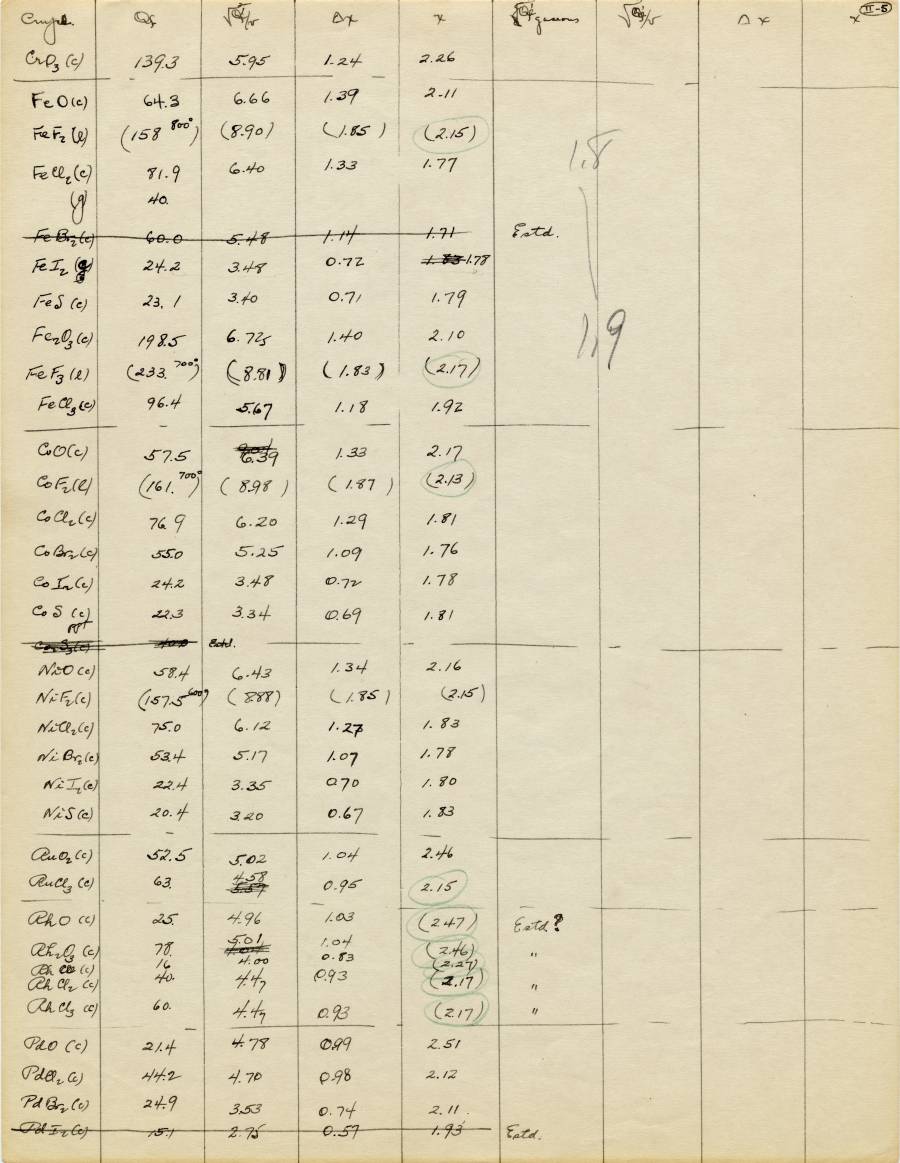 Cmpd. Qf √Qf/v Δx x √Q gaseous √Q/v Δx x II-5
CrO3 (c) 139.3 5.95 1.24 2.26
FeO (c) 64.3 6.66 1.39 2.11
FeF2 (l) (158 800°) (8.90) (1.85) (2.15)
FeCl2 (c) 81.9 6.40 1.33 1.77 1.8
(g) 40.
FeBr2 (c) 60.0 5.48 1.14 1.71 Estd.
FeI2 24.2 3.48 0.72 1.83 1.78
FeS (c) 23.1 3.40 0.71 1.79
Fe2O3 (c) 198.5 6.725 1.40 2.10 1.9
FeF3 (l) (233. 700°) (8.81) (1.83) (2.17)
FeCl3 (c) 96.4 5.67 1.18 1.92
CoO (c) 57.5 6.39 1.33 2.17
CoF2 (l) (161. 700°) (8.98) (1.87) (2.13)
CoCl2 (c) 76.9 6.20 1.29 1.81
CoBr2 (c) 55.0 5.25 1.09 1.76
CoI2 (c) 24.2 3.48 0.72 1.78
CoS (c) 22.3 3.34 0.69 1.81
ppt
Co2S3 (c) 40.0 Estd.
NiO (c) 58.4 6.43 1.34 2.16
NiF2 (c) (157.5 600°) (8.88) (1.85) (2.15)
NiCl2 (c) 75.0 6.12 1.27 1.83
NiBr2 (c) 53.4 5.17 1.07 1.78
NiI2 (c) 22.4 3.35 0.70 1.80
NiS (c) 20.4 3.20 0.67 1.83
RuO2 (c) 52.5 5.02 1.04 2.46
RuCl3 (c) 63. 4.58 0.95 2.15
RhO (c) 25. 4.96 1.03 (2.47) Estd?
Rh2O3 (c) 78. 5.01 1.04 (2.46) "
Rh (c) 16 4.00 0.83 (2.27)
RhCl2 (c) 40. 4.47 0.93 (2.17) "
RhCl3 (c) 60. 4.47 0.93 (2.17) "
PdO (c) 21.4 4.78 0.99 2.51
PdCl2 (c) 44.2 4.70 0.98 2.12
PdBr2 (c) 24.9 3.53 0.74 2.11.
PdI2 (c) 15.1 2.75 0.57 1.93 Estd.